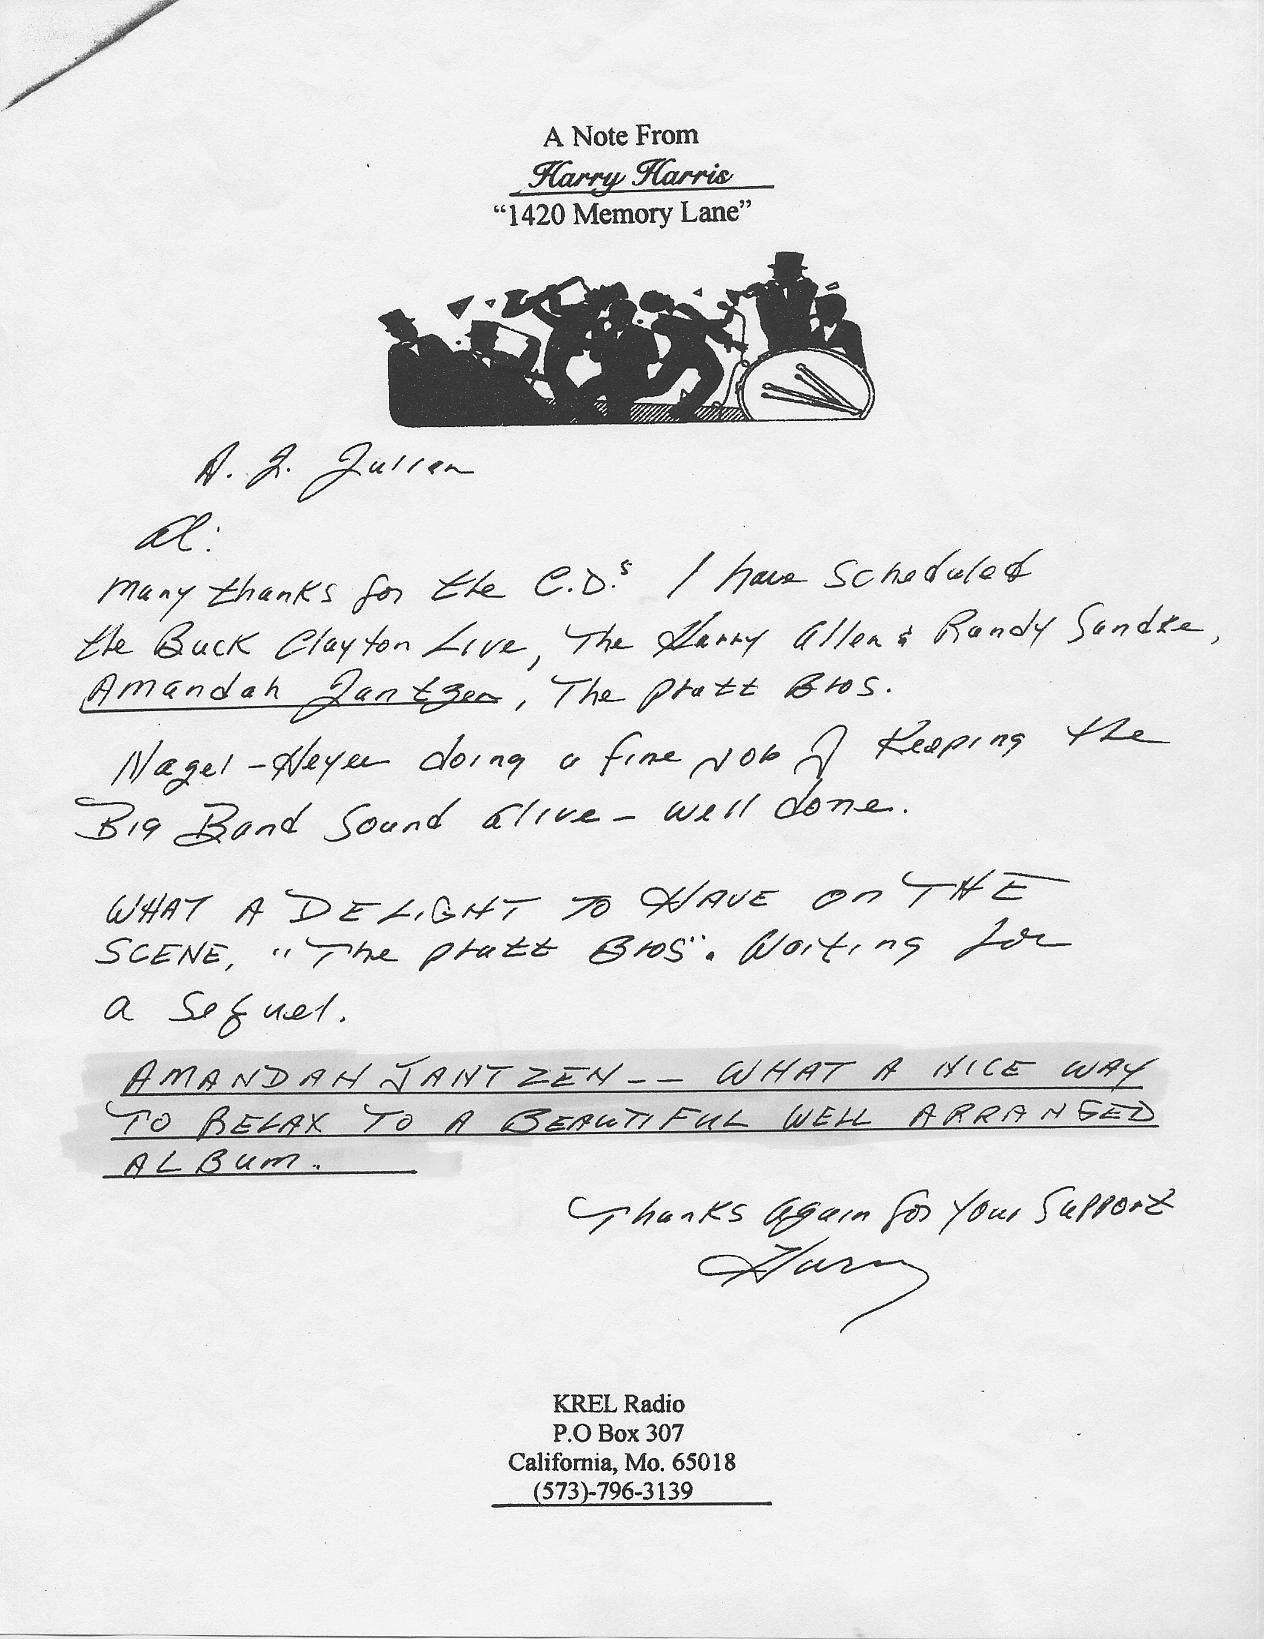 A Note From
Harry Harris
“1420 Memory Lane”
A. J. Julian
Al:
Many thanks for the C.D.s I have scheduled
the Buck Clayton Live, The Harry Allen & Randy Sandke,
Amandah Jantzen, The Pratt Bros.
Nagel-Heyer doing a fine job of keeping the
Big Band Sound alive - well done.
WHAT A DELIGHT TO HAVE on THE
SCENE, "The Pratt Bros". Waiting for
a sequel.
AMANDAH JANTZEN -- WHAT A NICE WAY
TO RELAX TO A BEAUTIFUL WELL ARRANGED
ALBUM.
Thanks again for your support
Harry
KREL Radio
P.O Box 307
California, Mo. 65018
(573)-796-3139